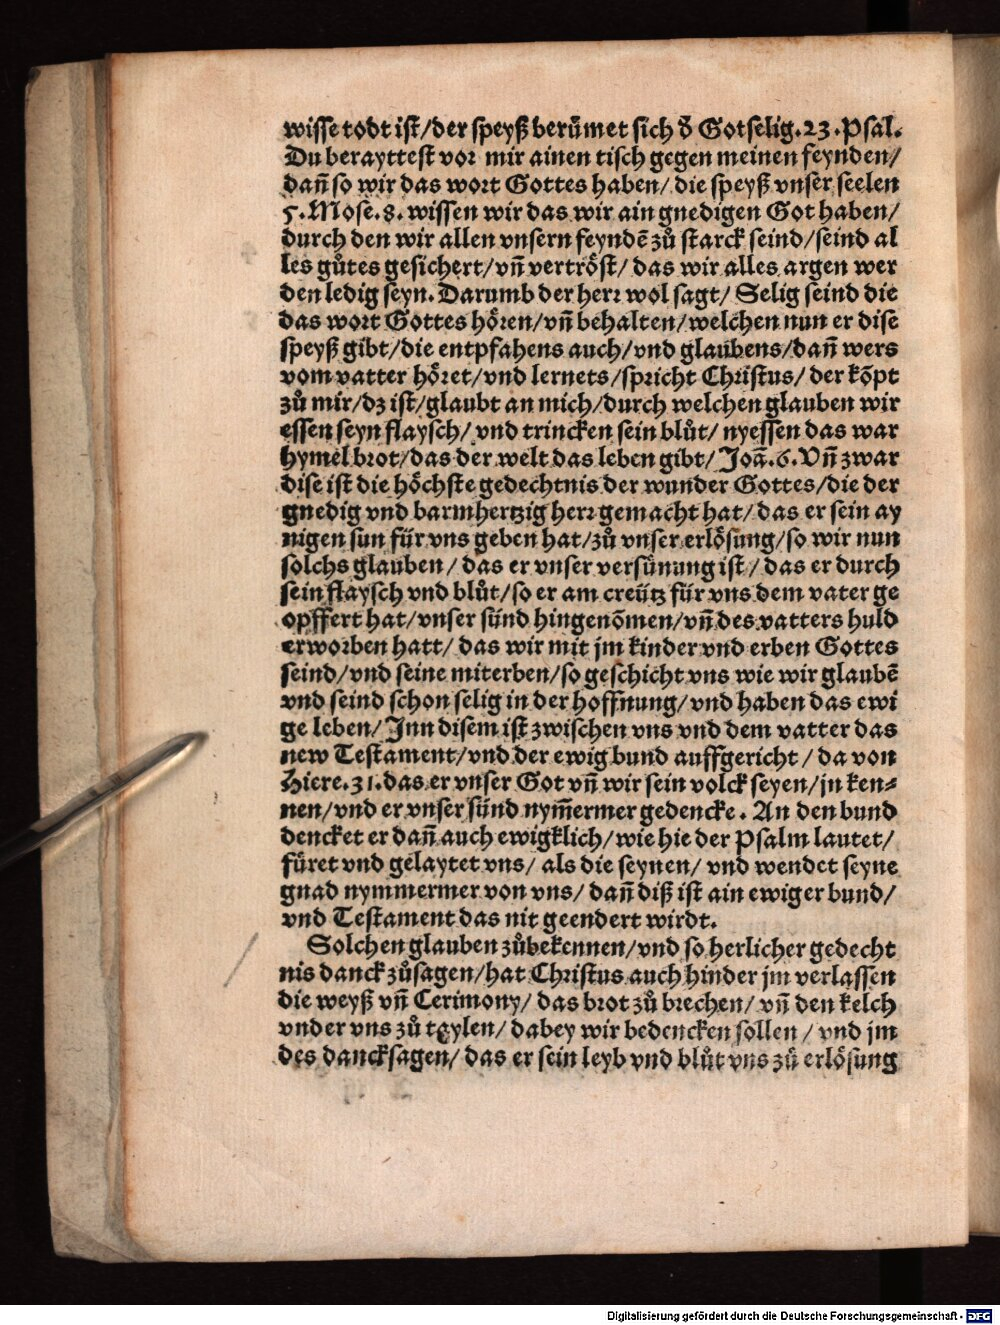 wisse todt ist/der speyß berümet sich d̕ Gotselig.23.Psal.
Du berayttest vor mir ainen tisch gegen meinen feynden/
dañ so wir das wort Gottes haben/ die speyß vnser seelen
5.Mose.8. wissen wir das wir ain gnedigen Got haben/
durch den wir allen vnsern feyndē zů starck seind/seind al
les gůtes gesichert/vñ vertröst/ das wir alles argen wer
den ledig seyn. Darumb der herr wol sagt/ Selig seind die
das wort Gottes hören/vñ behalten/welchen nun er dise
speyß gibt/die entpfahens auch/vnd glaubens/dañ wers
vom vatter höret/vnd lernets/spricht Christus/ der kõpt
zů mir/dz ist/glaubt an mich/durch welchen glauben wir
essen seyn flaysch/ vnd trincken sein blůt/ nyessen das war
hymel brot/das der welt das leben gibt/ Joã.6. Vñ zwar
dise ist die höchste gedechtnis der wunder Gottes/die der
gnedig vnd barmhertzig herr gemacht hat/ das er sein ay
nigen sun für vns geben hat/zů vnser erlösung/so wir nun
solchs glauben/ das er vnser versünung ist/ das er durch
sein flaysch vnd blůt/so er am creütz für vns dem vater ge
opffert hat/vnser sünd hingenõmen/vñ des vatters huld
erworben hatt/ das wir mit jm kinder vnd erben Gottes
seind/vnd seine miterben/so geschicht vns wie wir glaubē
vnd seind schon selig in der hoffnung/vnd haben das ewi
ge leben/ Inn disem ist zwischen vns vnd dem vatter das
new Testament/vnd der ewig bund auffgericht/ da von
Hiere.31.das er vnser Got vñ wir sein volck seyen/jn ken⸗
nen/vnd er vnser sünd nym̃ermer gedencke. An den bund
dencket er dañ auch ewigklich/wie hie der Psalm lautet/
füret vnd gelaytet vns/ als die seynen/ vnd wendet seyne
gnad nymmermer von vns/ dañ diß ist ain ewiger bund/
vnd Testament das nit geendert wirdt.
Solchen glauben zůbekennen/vnd so herlicher gedecht
nis danck zůsagen/hat Christus auch hinder jm verlassen
die weyß vñ Cerimony/ das brot zů brechen/ vñ den kelch
vnder vns zů taylen/ dabey wir bedencken sollen/ vnd jm
des dancksagen/ das er sein leyb vnd blůt vns zů erlösung
Digitalisierung gefördert durch die Deutsche Forschungsgemeinschaft - DFG